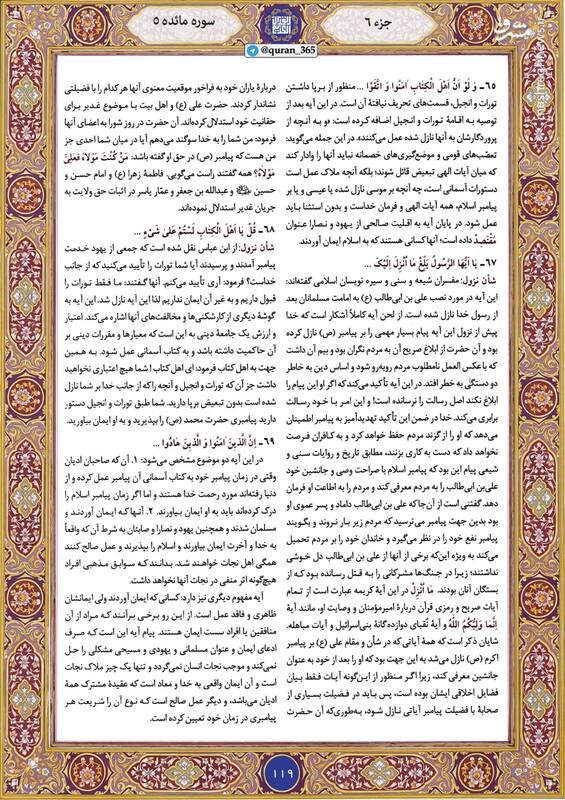 جزء ۶
سوره مائده ۵
@quran_365
۶۵- وَ لَوْ اَنَّ اَهْلَ الْکِتَابِ ءَامَنُوا وَ اتَّقَوْا ... منظور از برپا داشتن
تورات و انجیل، قسمت‌های تحریف نیافتهٔ آن است. در این آیه بعد از
توصیه به اقامهٔ تورات و انجیل اضافه کرده است: «و به آنچه از
پروردگارشان به آنها نازل شده عمل می‌کنند». در این جمله می‌گوید:
تعصّب‌های قومی و موضع‌گیری‌های خصمانه نباید آنها را وادار کند
که میان آیات الهی تبعیض قائل شوند؛ بلکه آنچه ملاک عمل است
دستورات آسمانی است، چه آنچه بر موسی نازل شده یا عیسی و یا بر
پیامبر اسلام، همه آیات الهی و فرمان خداست و بدون استثنا باید
عمل شود. در پایان آیه به اقلیت صالحی از یهود و نصارا عنوان
مُقْتَصِدٌ داده است؛ آنها کسانی هستند که به اسلام ایمان آوردند.
۶۷- یَا اَیُّهَا الرَّسُولُ بَلِّغْ مَا اُنْزِلَ اِلَیْکَ ...
شأن نزول: مفسران شیعه و سنی و سیره نویسان اسلامی گفته‌اند:
این آیه در مورد نصب علی بن ابی‌طالب (ع) به امامت مسلمانان بعد
از رسول خدا نازل شده است. از لحن آیه کاملاً آشکار است که خدا
پیش از نزول این آیه پیام بسیار مهمی را بر پیامبر (ص) نازل کرده
بود و آن حضرت از ابلاغ صریح آن به مردم نگران بود و بیم آن داشت
که با عکس العمل نامطلوب مردم روبه‌رو شود و اساس دین به خاطر
دو دستگی به خطر افتد. در این آیه تأکید می‌کند که اگر او این پیام را
ابلاغ نکند اصل رسالت را نرسانده است! و این امر با خود رسالت
برابری می‌کند. خدا در ضمن این تأکید تهدیدآمیز به پیامبر اطمینان
می‌دهد که او را از گزند مردم حفظ خواهد کرد و به کافران فرصت
نخواهد داد که دست به کاری بزنند. مطابق تاریخ و روایات سنی و
شیعی پیام این بود که پیامبر اسلام با صراحت وصی و جانشین خود
علی‌بن ابی‌طالب را به مردم معرفی کند و مردم را به اطاعت او فرمان
دهد. گفتنی است از آن‌جا که علی بن ابی‌طالب داماد و پسر عموی او
بود بدین جهت پیامبر می‌ترسید که مردم زیر بار نروند و بگویند
پیامبر نفع خود را در نظر می‌گیرد و خاندان خود را بر مردم تحمیل
می‌کند به ویژه این‌که برخی از آنها از علی بن ابی‌طالب دل خوشی
نداشتند؛ زیرا در جنگ‌ها مشرکانی را به قتل رسانده بود که از
بستگان آنان بودند. مَا اُنْزِلَ در این آیهٔ کریمه عبارت است از تمام
آیات صریح و رمزی قرآن دربارهٔ امیرمؤمنان و وصایت او، مانند آیهٔ
اِنَّمَا وَلِیُّکُمُ اللّٰهُ و آیهٔ نُقبای دوازده‌گانهٔ بنی‌اسرائیل و آیات مباهله.
شایان ذکر است که همهٔ آیاتی که در شأن و مقام علی (ع) بر پیامبر
اکرم (ص) نازل می‌شد به این جهت بود که او را بعد از خود به عنوان
جانشین معرفی کند، زیرا اگر منظور از این‌گونه آیات فقط بیان
فضایل اخلاقی ایشان بوده است، پس باید در فضیلت بسیاری از
صحابهٔ با فضیلت پیامبر آیاتی نازل شود، به‌طوری‌که آن حضرت
دربارهٔ یاران خود به فراخور موقعیت معنوی آنها هر کدام را با فضیلتی
نشاندار کردند. حضرت علی (ع) و اهل بیت با موضوع غدیر برای
حقانیت خود استدلال کرده‌اند. آن حضرت در روز شورا به اعضای آنها
فرمود: من شما را به خدا سوگند می‌دهم آیا در میان شما احدی جز
من هست که پیامبر (ص) در حق او گفته باشد: مَنْ کُنْتُ مَوْلَاهُ فَعَلِیٌّ
مَوْلَاهُ؟ همه گفتند راست می‌گویی. فاطمهٔ زهرا (ع) و امام حسن و
حسین و عبدالله بن جعفر و عمّار یاسر در اثبات حق ولایت به
جریان غدیر استدلال نموده‌اند.
۶۸- قُلْ یَا اَهْلَ الْکِتَابِ لَسْتُمْ عَلَىٰ شَیْءٍ ...
شأن نزول: از ابن عباس نقل شده است که جمعی از یهود خدمت
پیامبر آمدند و پرسیدند آیا شما تورات را تأیید می‌کنید که از جانب
خداست؟ فرمود: آری تأیید می‌کنم. آنها گفتند: ما فقط تورات را
قبول داریم و به غیر آن ایمان نداریم لذا این آیه نازل شد. این آیه به
گوشهٔ دیگری از کارشکنی‌ها و مخالفت‌های آنها اشاره می‌کند. اعتبار
و ارزش یک جامعهٔ دینی به این است که معیارها و مقررات دینی بر
آن حاکمیت داشته باشد و به کتاب آسمانی عمل شود. به همین
جهت به اهل کتاب فرمود: ای اهل کتاب! شما هیچ اعتباری نخواهید
داشت جز آن که تورات و انجیل و آنچه را که از جانب خدا بر شما نازل
شده است بدون تبعیض برپا دارید. شما طبق تورات و انجیل دستور
دارید پیامبری حضرت محمد (ص) را بپذیرید و به او ایمان بیاورید.
۶۹- اِنَّ الَّذِینَ ءَامَنُوا وَ الَّذِینَ هَادُوا ...
در این آیه دو موضوع مشخص می‌شود: ۱. آن که صاحبان ادیان
وقتی در زمان پیامبر خود به کتاب آسمانی آن پیامبر عمل کرده و از
دنیا رفته‌اند مورد رحمت خدا هستند و اما اگر زمان پیامبر اسلام را
درک کرده‌اند باید به او ایمان بیاورند. ۲. آنها که ایمان آوردند و
مسلمان شدند و همچنین یهود و نصارا و صابئان به شرط آن که واقعاً
به خدا و آخرت ایمان بیاورند و اسلام را بپذیرند و عمل صالح کنند
همگی اهل نجات خواهند شد. بدانند که سوابق مذهبی افراد
هیچ‌گونه اثر منفی در نجات آنها نخواهد داشت.
آیه مفهوم دیگری نیز دارد: کسانی که ایمان آوردند ولی ایمانشان
ظاهری و فاقد عمل است. از این رو برخی برآنند که مراد از آن
منافقین یا افراد سست ایمان هستند. پیام آیه این است که صرف
ادعای ایمان و عنوان مسلمانی و یهودی و مسیحی مشکلی را حل
نمی‌کند و موجب نجات انسان نمی‌گردد و تنها یک چیز ملاک نجات
است و آن ایمان واقعی به خدا و معاد است که عقیدهٔ مشترک همهٔ
ادیان می‌باشد، و دیگر عمل صالح است که نوع آن را شریعت هر
پیامبری در زمان خود تعیین کرده است.
۱۱۹